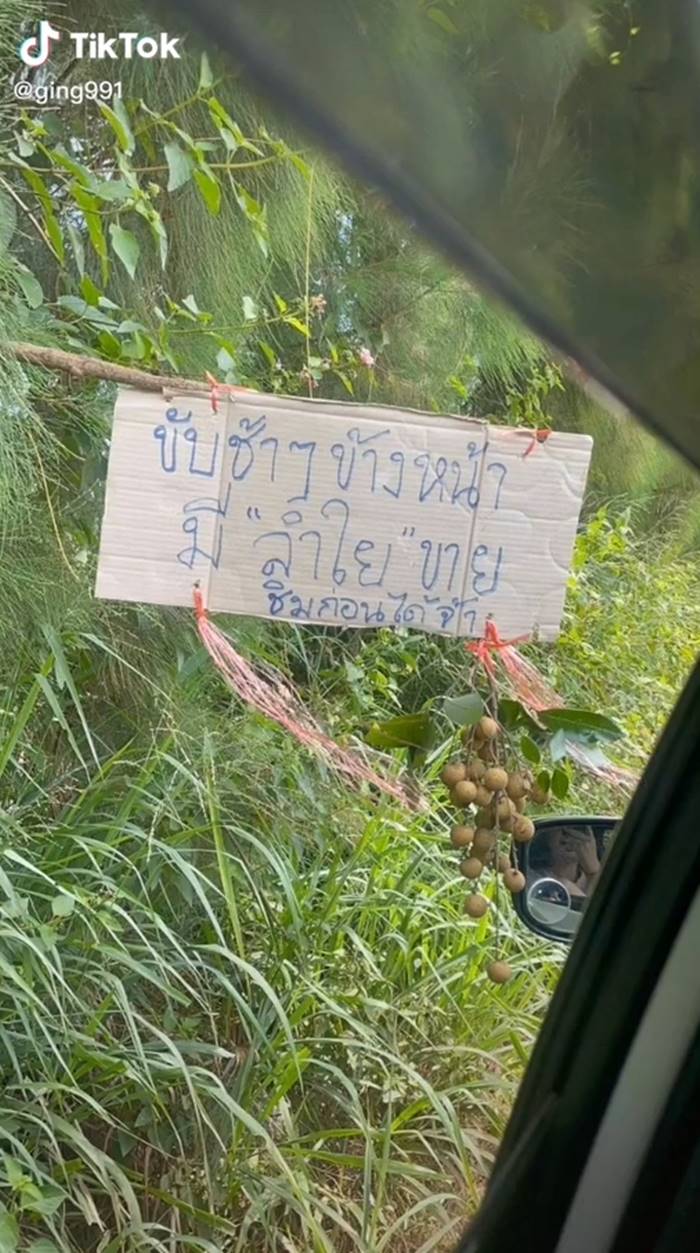 TikTok
@ging991
ขับช้าๆ ข้างหน้า
มี "ลำใย" ขาย
ชิมก่อนได้จ้า